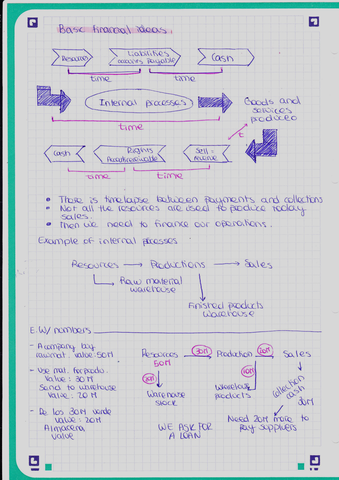 Basic financial ideas
Resources
Liabilities
accounts payable
Cash
time
time
Internal processes
Goods and
services
produced
time
t
Cash
Rights
Sell =
Revenue
time
time
There is timelapse between Payments and collections
Not all the resources are used to produce today
sales.
Then we need to finance our operations.
Example of internal processes
Resources → Productions → Sales
Raw material
warehouse
Finished products
Warehouse
E.W/ numbers
- A company buy
raw mat. value: 50M
Resources
50M
30M
Production
20M
Sales
Value: 30M
Send to warehouse
Value: 20M
20M
Warehouse
stock
10M
Warehouse
products
collection
cash
30M
- De los 30M vende
value: 20M
Almacena
value
WE ASK FOR
A LOAN
Need 20M more to
pay suppliers